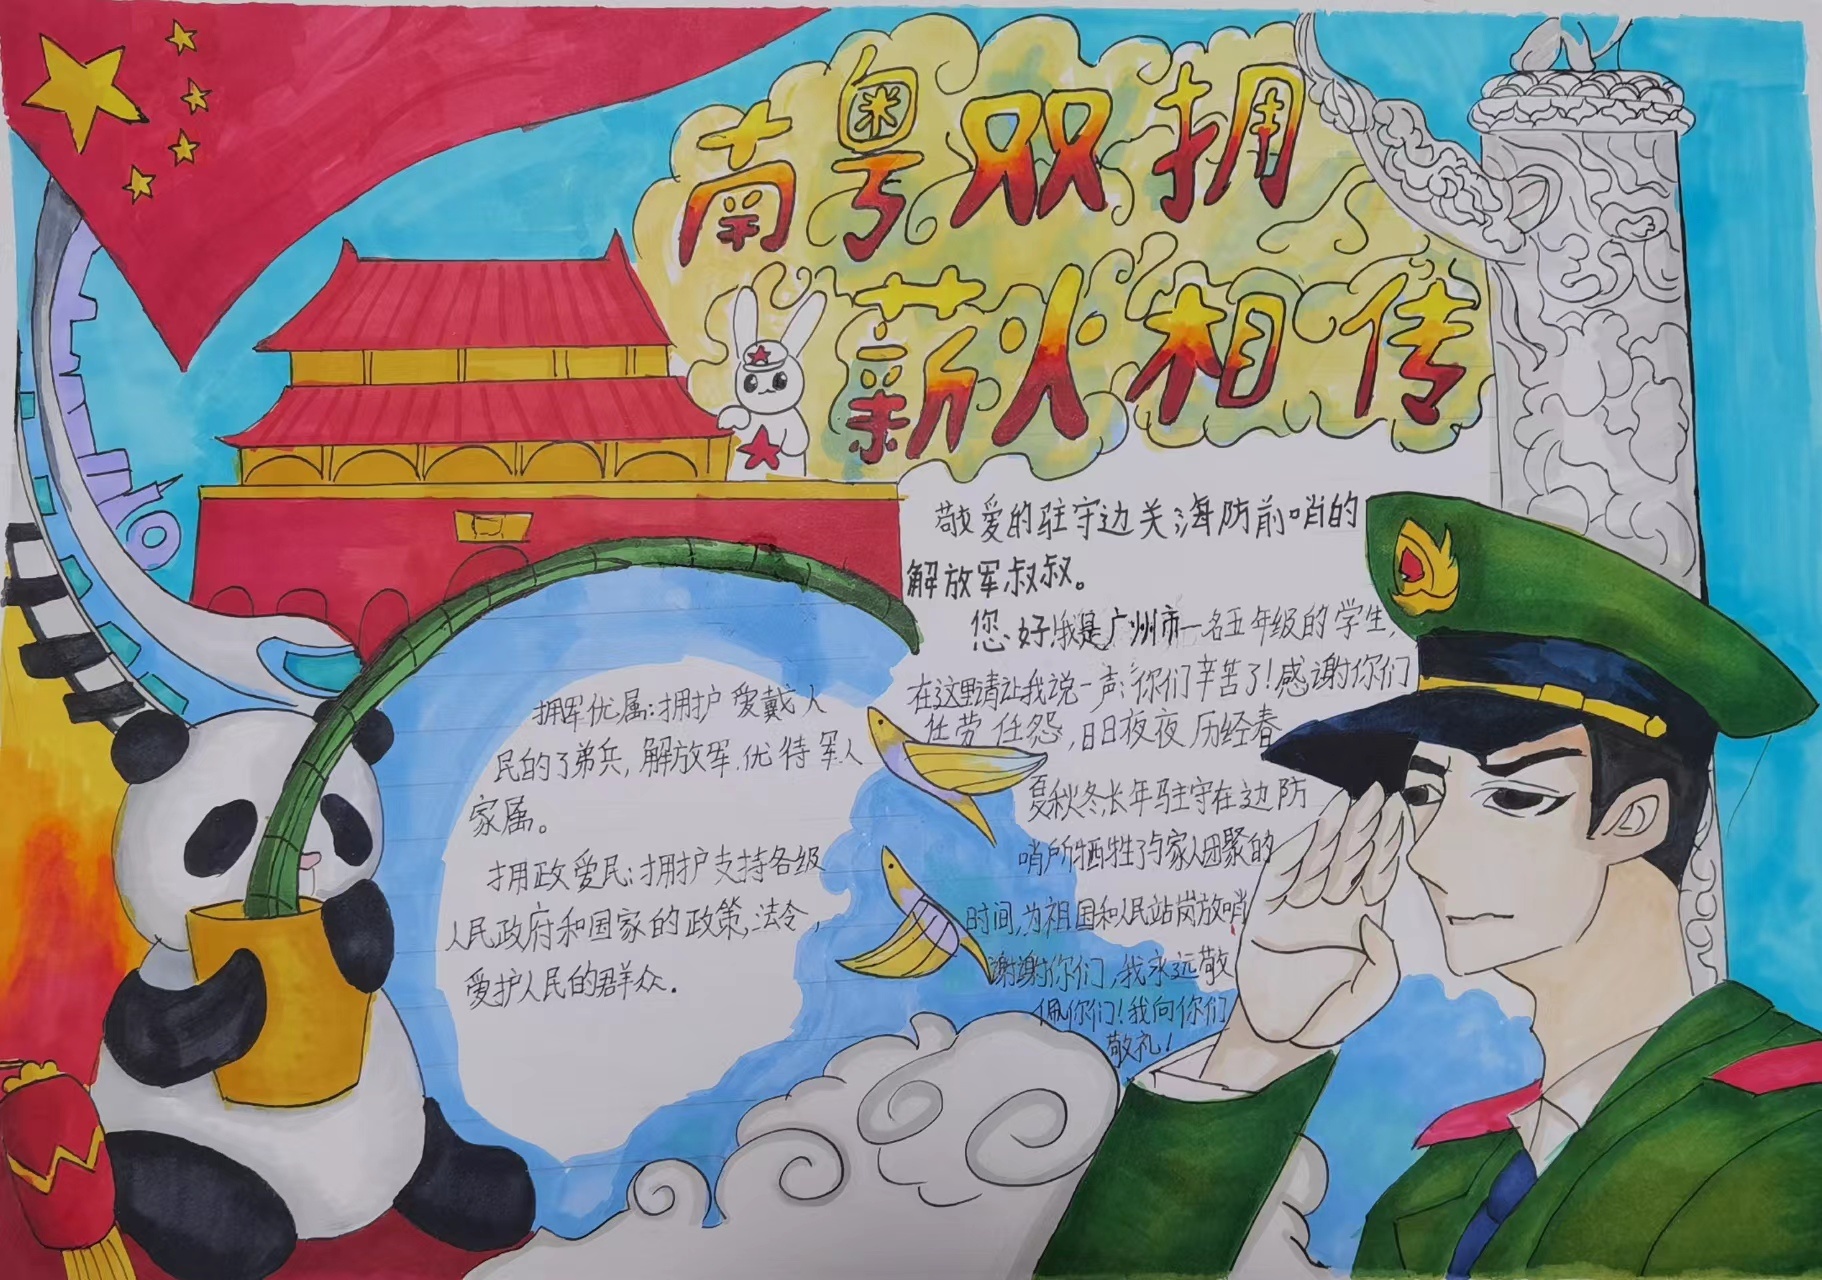 南粤双拥
薪火相传
敬爱的驻守边关海防前哨的
解放军叔叔。
您好!我是广州市一名五年级的学生,
在这里请让我说一声:你们辛苦了!感谢你们
任劳任怨,日日夜夜历经春
夏秋冬,长年驻守在边防
哨所牺牲了与家人团聚的
时间,为祖国和人民站岗放哨
谢谢你们,我永远敬
佩你们!我向你们
敬礼!
拥军优属:拥护爱戴人
民的子弟兵,解放军.优待军人
家属。
拥政爱民:拥护支持各级
人民政府和国家的政策,法令,
爱护人民的群众.